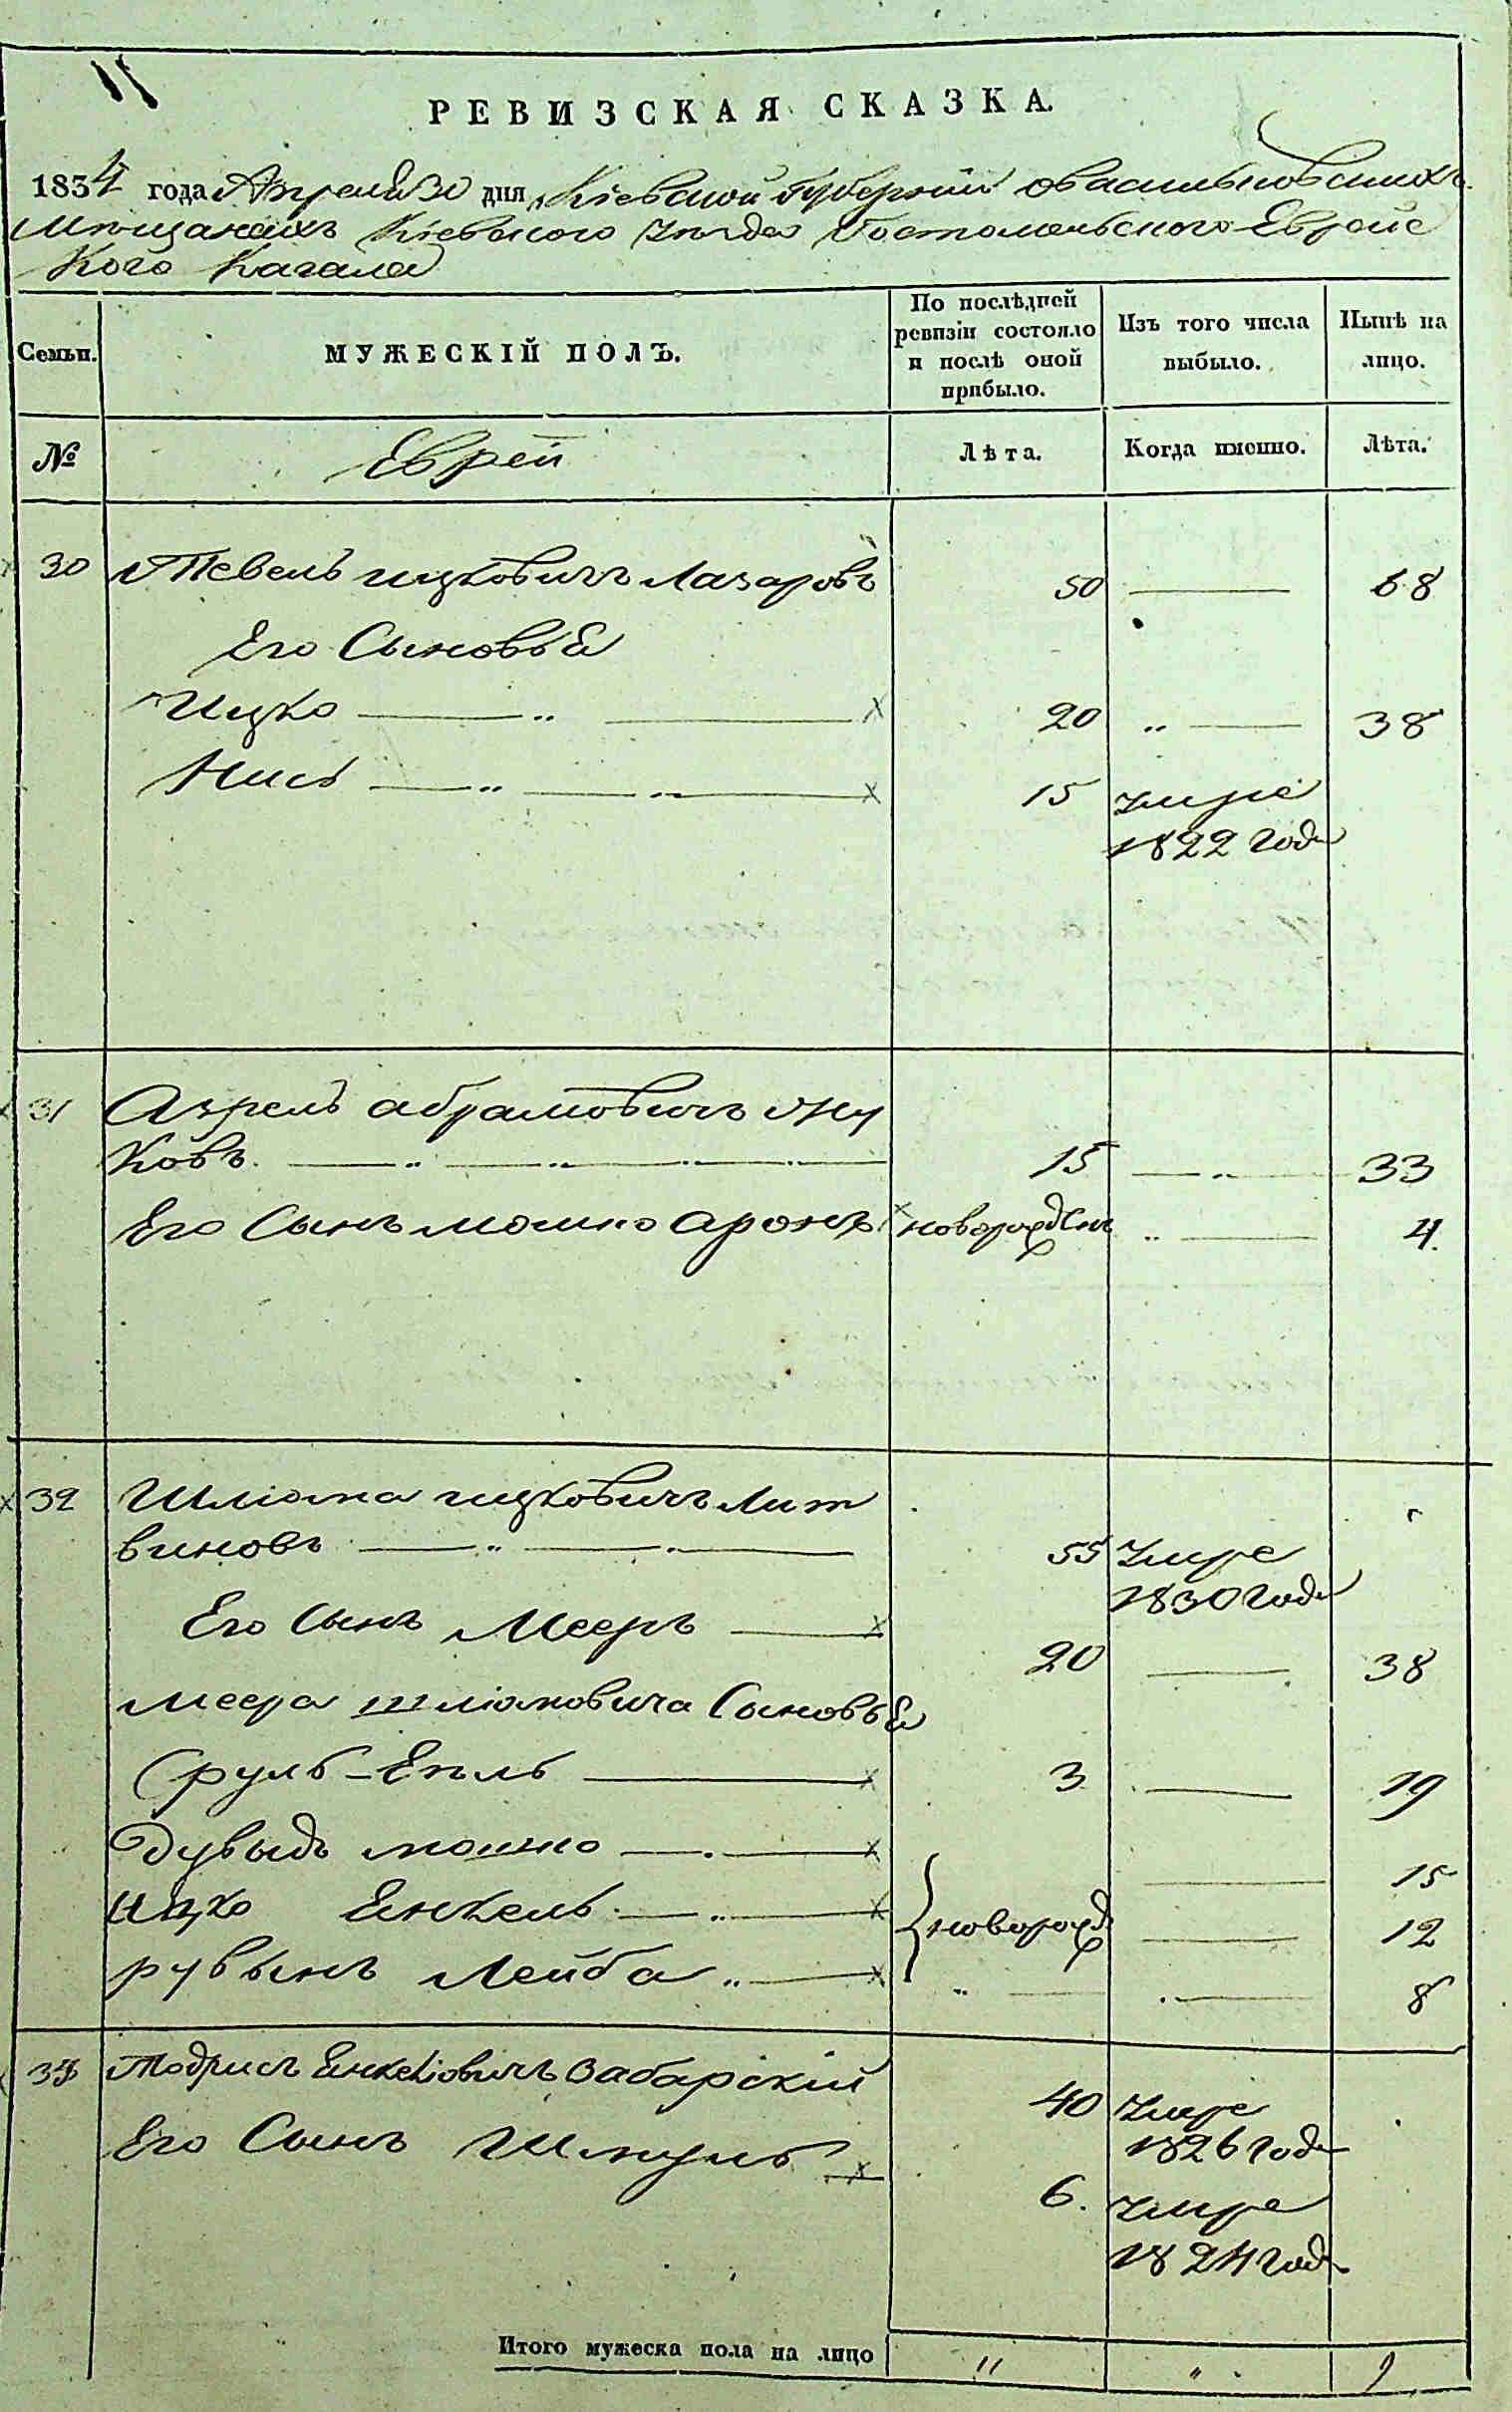 11
РЕВИЗСКАЯ СКАЗКА.
1834 года Апреля 30 дня, Кіевской Губерніи о васильковскихъ
Мѣщанахъ Кіевского уѣзда Гостомельского Еврейс
кого Кагала
Семьи. МУЖЕСКІЙ ПОЛЪ. По послѣдней ревизіи состояло и послѣ оной прибыло. Изъ того числа выбыло. Нынѣ на лицо.
№ Еврей Лѣта. Когда именно. Лѣта.
30 Тевель ицковичъ Лазаровъ 50 — 68
Его Сыновья
Ицко — " — х 20 " — 38
Нись — " — " — х 15 умре
1822 года
31 Азрель абрамовичъ
ковъ. — " — " — " — " — 15 — " — 33
Его Сынъ мошко аронъ х новорожден " — 4.
32 Шліома ицковичъ Лит
виновъ — " — " — 55 умре
1830 года
Его Сынъ Мееръ — х 20 — 38
Меера шліомовича Сыновья
Сруль-Ейль — х 3 — 19
Дувыдъ мошко — . — х — 15
Ицко Енкель. — " — х { новорожд — 12
рувынъ Лейба " — х " — " — 8
33 Тодрисъ Енкеліовичъ Забарскій 40 умре
1826 года
Его Сынъ Шмуль х 6. умре
1824 года
Итого мужеска пола на лицо " " 9